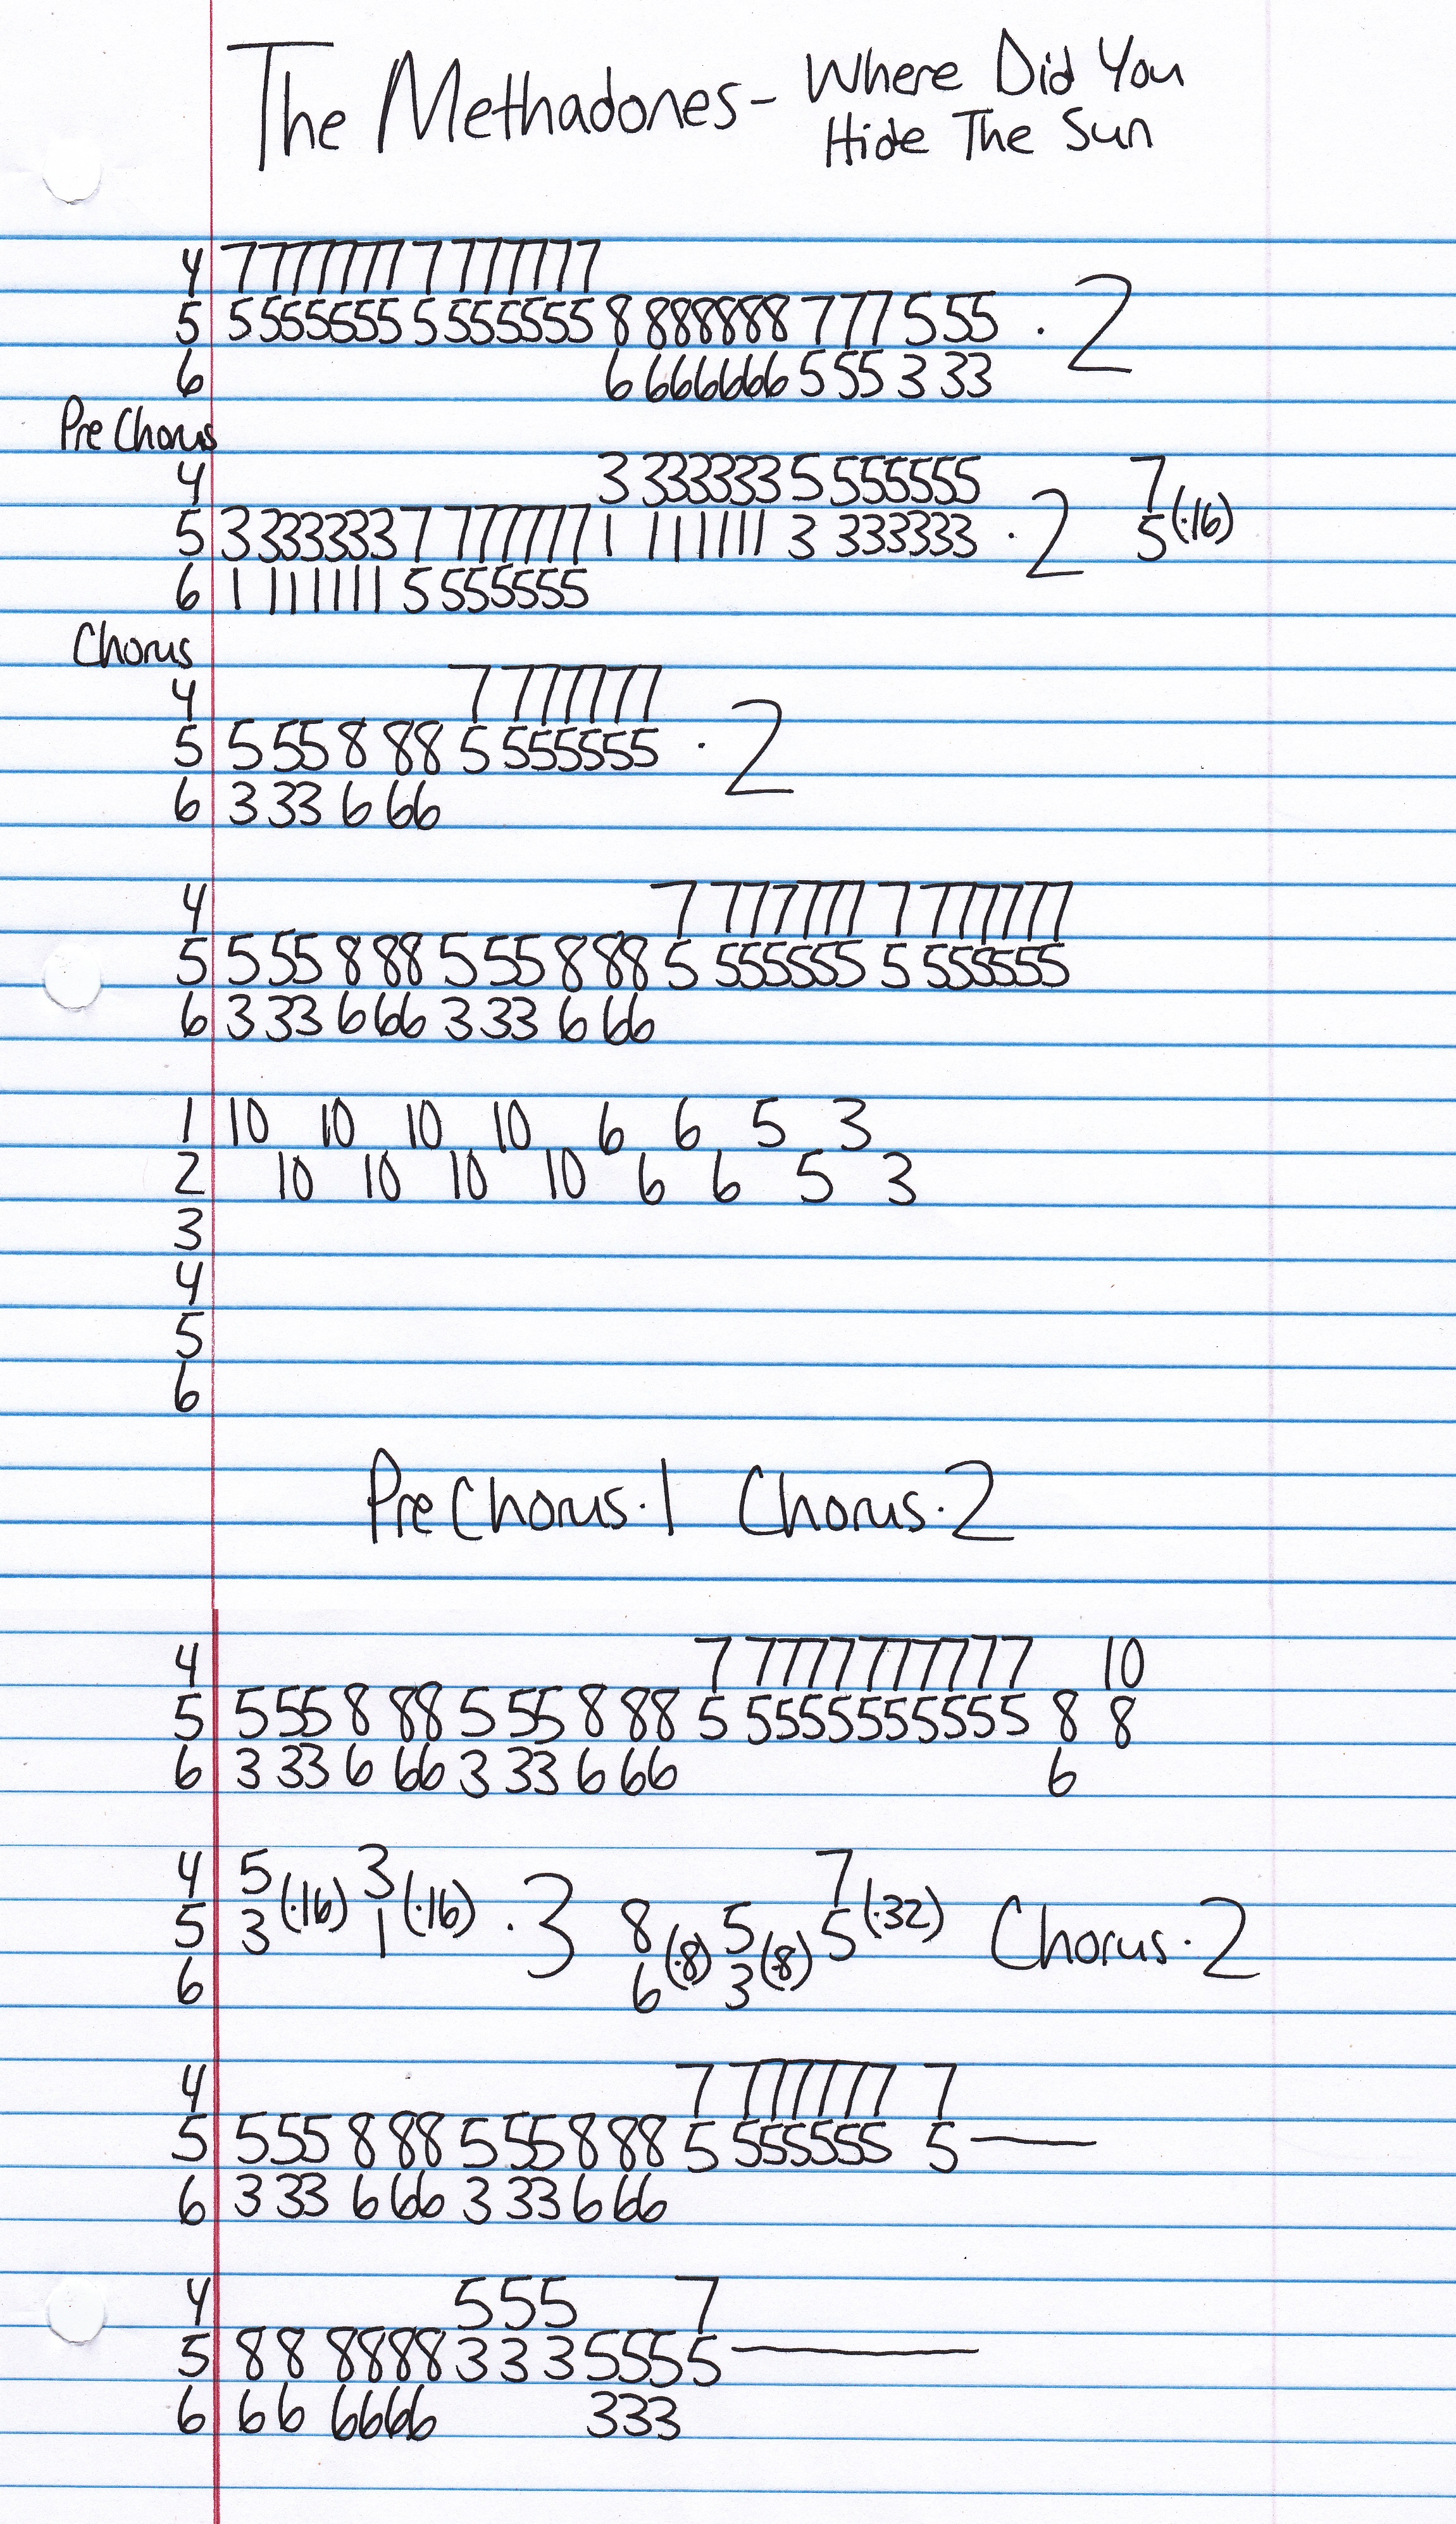 The Methadones - Where Did You
Hide The Sun
4 7777777 7777777
5 5555555 5555555 8 888888 777 555 · 2
6 6 666666 555 3 33
Pre Chorus
4 3 333333 5 555555 7
5 3 333333 7 777777 1 111111 3 333333 · 2 5 (·16)
6 1 111111 5 555555
Chorus
4 7 777777
5 5 55 8 88 5 555555 · 2
6 3 33 6 66
4 7 777777 7 777777
5 5 55 8 88 5 55 8 88 5 555555 5 555555
6 3 33 6 66 3 33 6 66
1 10 10 10 10 6 6 5 3
2 10 10 10 10 6 6 5 3
3
4
5
6
Pre Chorus · 1 Chorus · 2
4 7 7777777777 10
5 5 55 8 88 5 55 8 88 5 5555555555 8 8
6 3 33 6 66 3 33 6 66 6
4 5 3 7
5 3 (·16) 1 (·16) · 3 8 (·8) 5 (·8) 5 (·32) Chorus · 2
6 6 3
4 7 777777 7
5 5 55 8 88 5 55 8 88 5 555555 5 —
6 3 33 6 66 3 33 6 66
4 555 7
5 88 8888 333 555 5 —
6 66 6666 333